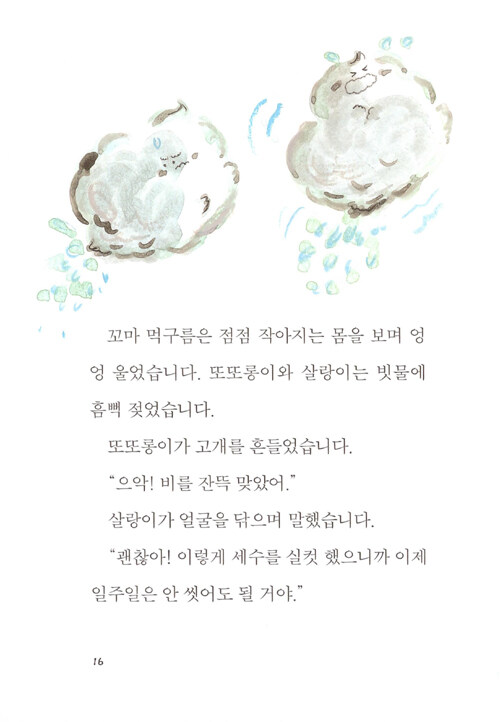 꼬마 먹구름은 점점 작아지는 몸을 보며 엉
엉 울었습니다. 또또롱이와 살랑이는 빗물에
흠뻑 젖었습니다.
또또롱이가 고개를 흔들었습니다.
“으악! 비를 잔뜩 맞았어.”
살랑이가 얼굴을 닦으며 말했습니다.
“괜찮아! 이렇게 세수를 실컷 했으니까 이제
일주일은 안 씻어도 될 거야.”
16